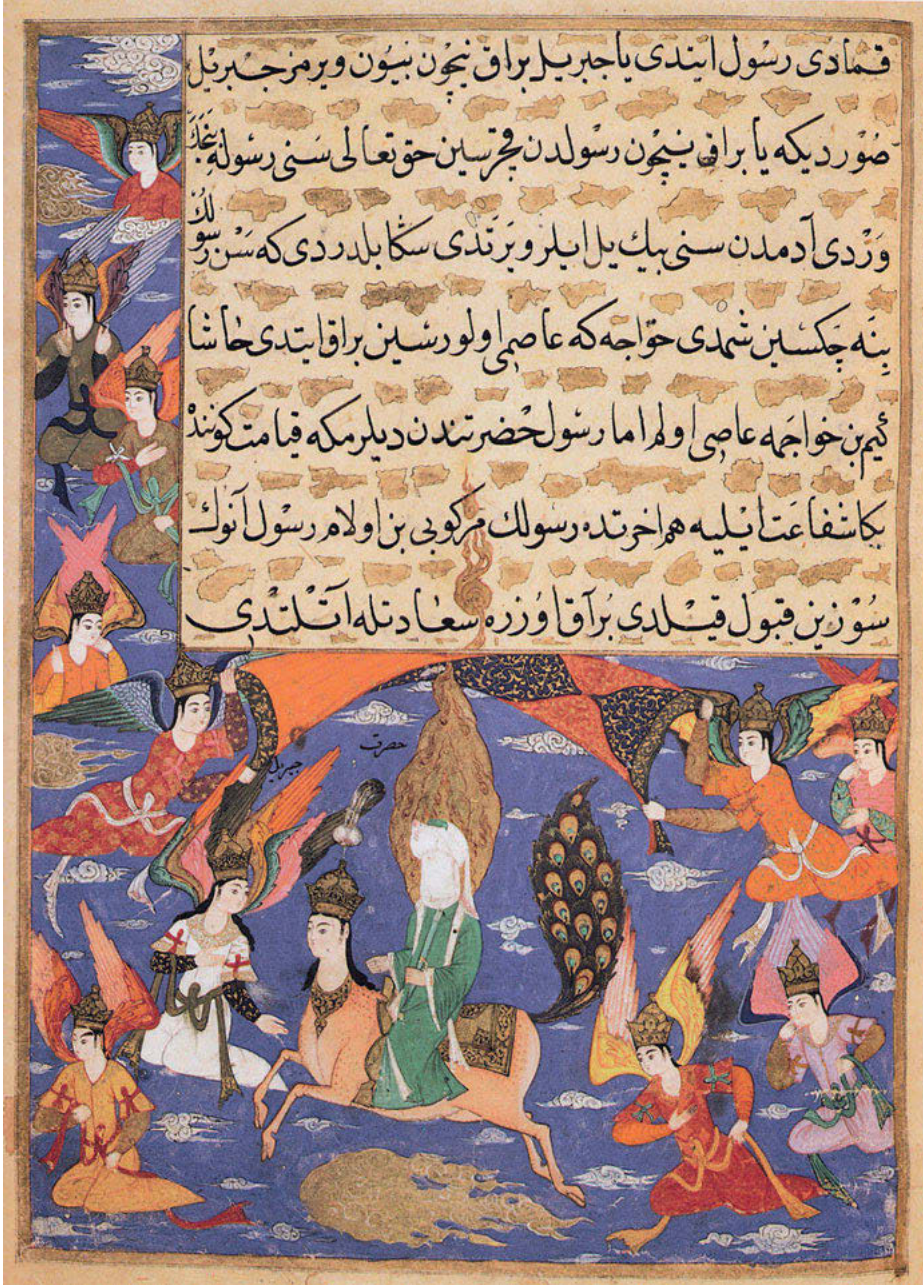 قمادی رسول ایتدی یا جبریل براق نیچون بنیون ویرمز جبریل
صوردیکه یا براق نیچون رسولدن قچرسین حق تعالی سنی رسوله بنجك
وردی آدمدن سنی بیك یل ایلرو یرتدی سکا بلدردی که سن رسولك
بنه جکسین شمدی خواجه که عاصی اولورسین براق ایتدی حاشا
کیم بن خواجمه عاصی اولم اما رسول حضرتندن دیلرمکه قیامت کوننده
بکا شفاعت ایلیه هم اخرتده رسولك مرکوبی بن اولام رسول آنوك
سوزین قبول قیلدی براق اوزره سعادتله آتلندی
حضرت
جبریل